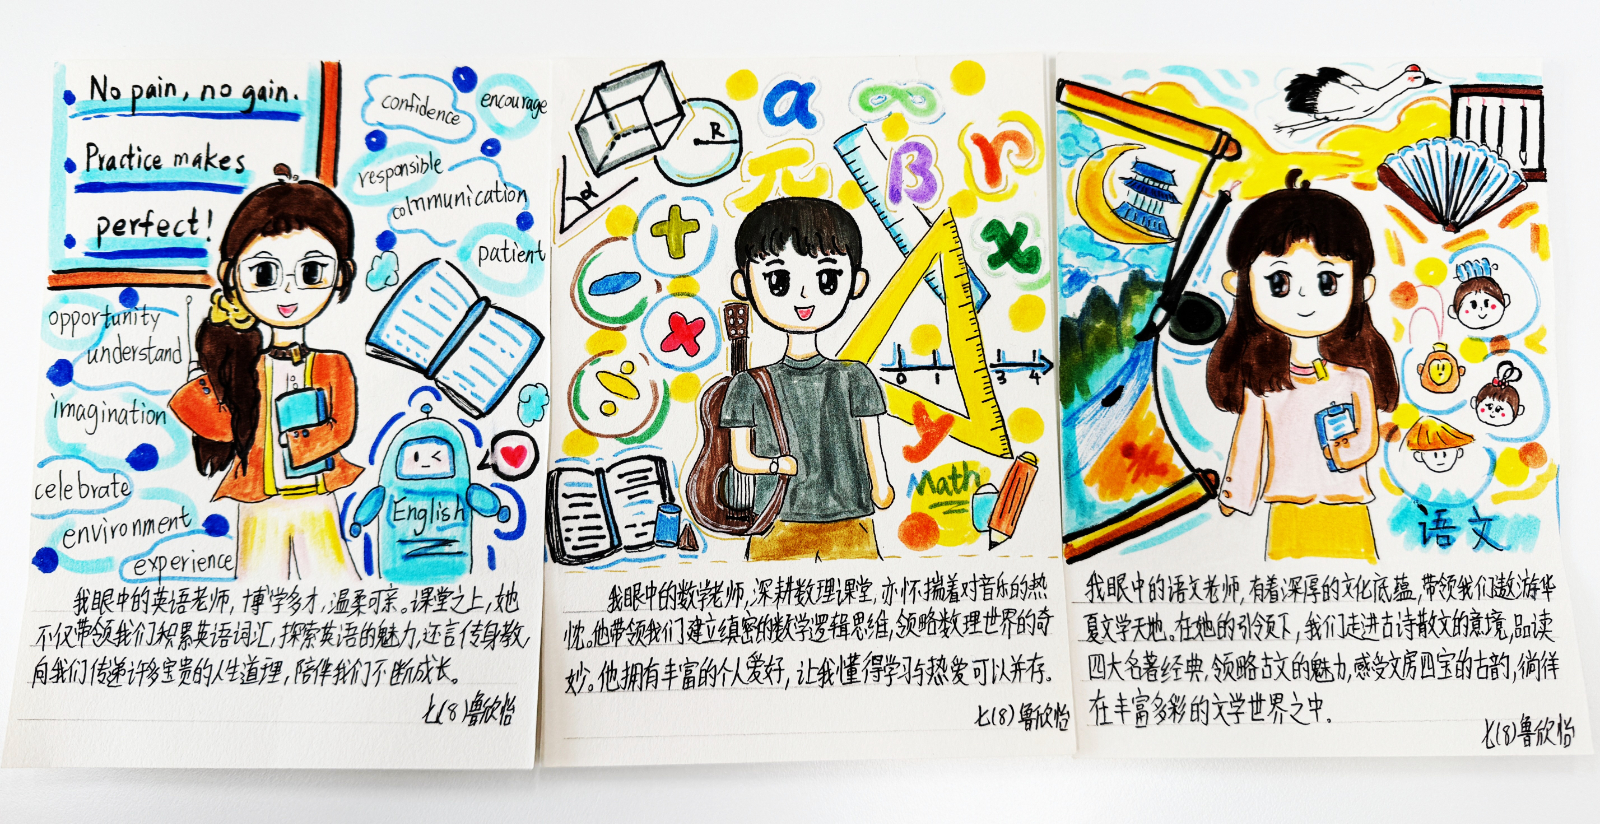 No pain, no gain.
Practice makes
perfect!
confidence
encourage
responsible
communication
patient
opportunity
understand
imagination
celebrate
environment
experience
English
我眼中的英语老师,博学多才,温柔可亲。课堂之上,她
不仅带领我们积累英语词汇,探索英语的魅力,还言传身教,
向我们传递许多宝贵的人生道理,陪伴我们不断成长。
七(8)鲁欣怡
R
α
a
∞
π
B
r
x
+
-
×
÷
0 1 3 4
y
Math
我眼中的数学老师,深耕数理课堂,亦怀揣着对音乐的热
忱。他带领我们建立缜密的数学逻辑思维,领略数理世界的奇
妙。他拥有丰富的个人爱好,让我懂得学习与热爱可以并存。
七(8)鲁欣怡
语文
我眼中的语文老师,有着深厚的文化底蕴,带领我们遨游华
夏文学天地。在她的引领下,我们走进古诗散文的意境,品读
四大名著经典,领略古文的魅力,感受文房四宝的古韵,徜徉
在丰富多彩的文学世界之中.
七(8)鲁欣怡